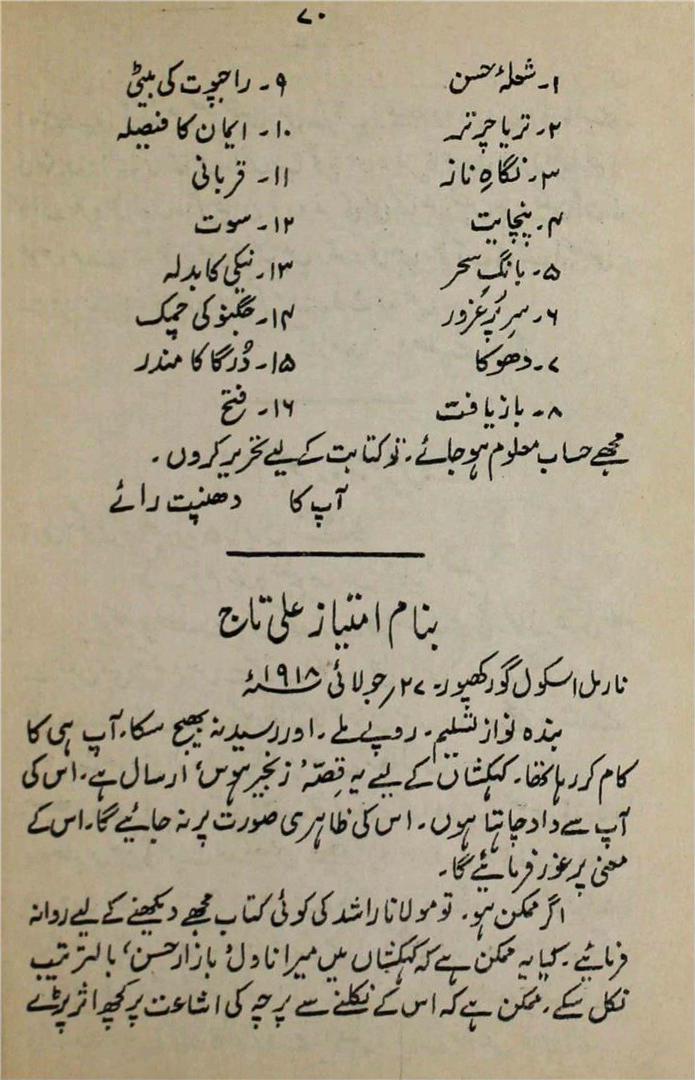 ۷۰
۱۔ شعلۂ حسن ۹۔ راجپوت کی بیٹی
۲۔ تریا چرتر ۱۰۔ ایمان کا فیصلہ
۳۔ نگاہِ ناز ۱۱۔ قربانی
۴۔ پنچایت ۱۲۔ سوت
۵۔ بانگِ سحر ۱۳۔ نیکی کا بدلہ
۶۔ سرِ پُر غرور ۱۴۔ جگنو کی چمک
۷۔ دھوکا ۱۵۔ دُرگا کا مندر
۸۔ بازیافت ۱۶۔ فتح
مجھے حساب معلوم ہو جائے۔ تو کتابت کے لیے تحریر کروں۔
آپ کا دھنپت رائے
بنام امتیاز علی تاج
نارمل اسکول گورکھپور۔ ۲۷؍ جولائی ۱۹۱۸ء
بندہ نواز تسلیم۔ روپے ملے۔ اور رسید نہ بھیج سکا۔ آپ ہی کا
کام کر رہا تھا۔ کہکشاں کے لیے یہ قصّہ ’زنجیر ہوس‘ ارسال ہے۔ اس کی
آپ سے داد چاہتا ہوں۔ اس کی ظاہری صورت پر نہ جائیے گا۔ اس کے
معنی پر غور فرمائیے گا۔
اگر ممکن ہو۔ تو مولانا راشد کی کوئی کتاب مجھے دیکھنے کے لیے روانہ
فرمائیے۔ کیا یہ ممکن ہے کہ کہکشاں میں میرا ناول ’بازار حسن‘ بالترتیب
نکل سکے۔ ممکن ہے کہ اس کے نکلنے سے پرچہ کی اشاعت پر کچھ اثر پڑے